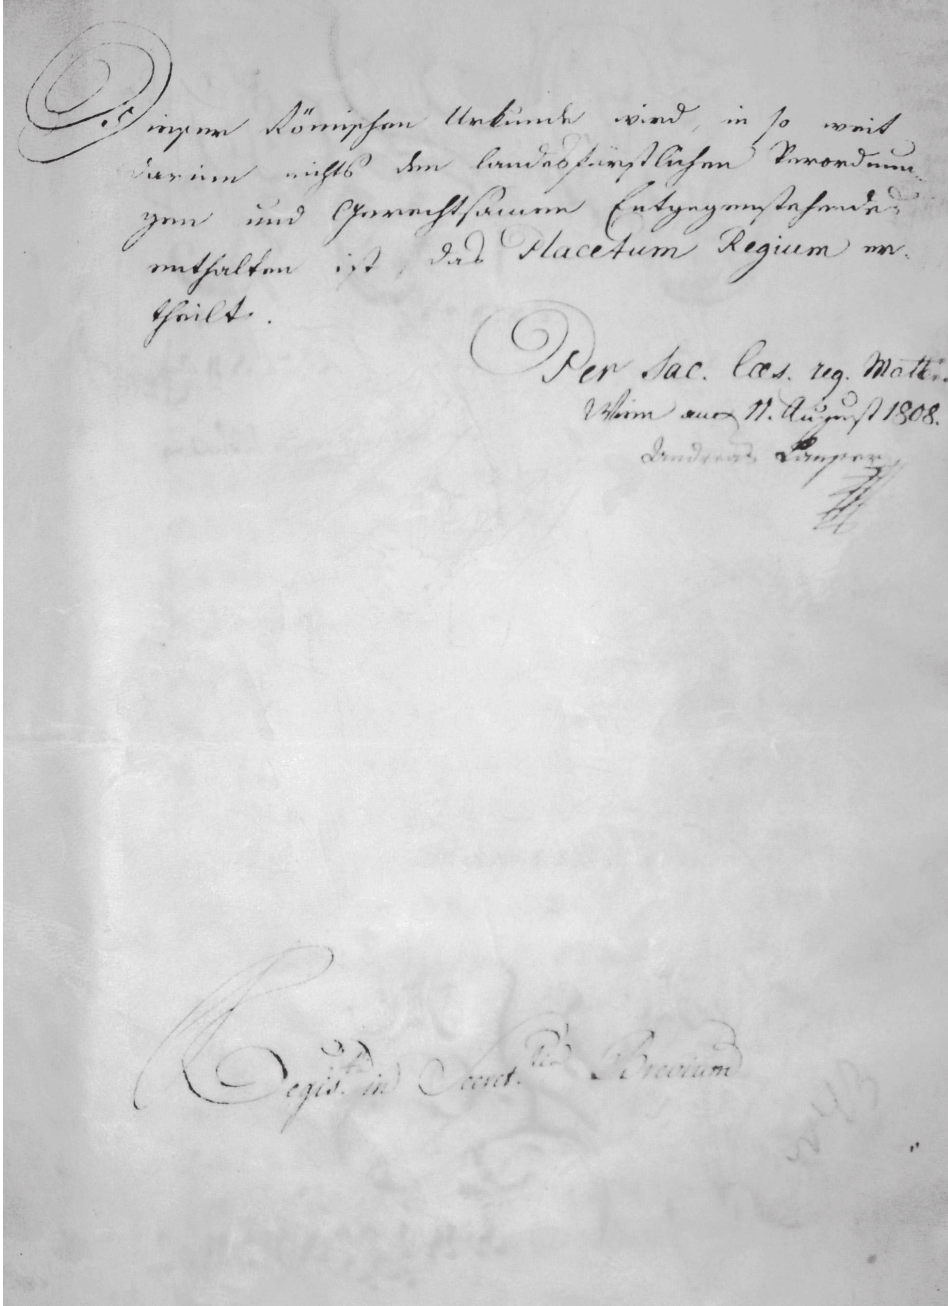 Dieser Römischen Urkunde wird, in so weit
darinn nichts den landesfürstlichen Verordnun-
gen und Gerechtsamen Entgegenstehendes
enthalten ist, das Placetum Regium er-
theilt.
Per Sac. Cæs. reg. Matt:
Wien am 11. August 1808.
Andreas
Regis.ta in Secret.ria Brevium